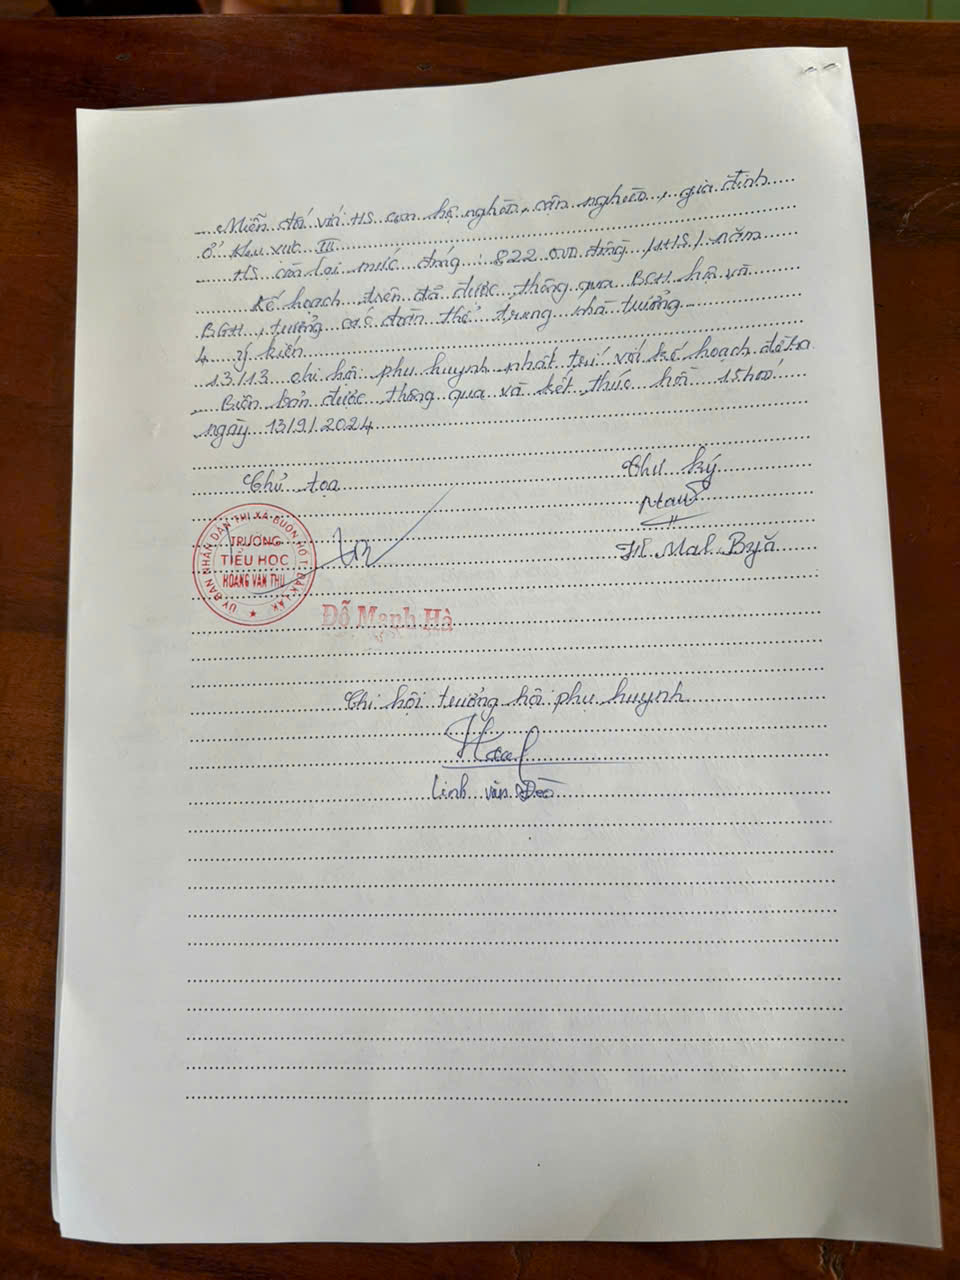 Miễn đối với HS con hộ nghèo, cận nghèo, gia đình
ở khu vực III
HS còn lại mức đóng: 822.000 đồng/1HS/năm
Kế hoạch trên đã được thông qua BGH họp và
BGH, trưởng các đoàn thể trong nhà trường
4. ý kiến
13/13 chi hội phụ huynh nhất trí với kế hoạch đề ra
Biên bản được thông qua và kết thúc hồi 15h00'
ngày 13/9/2024
Chủ tọa
Thư ký
ỦY BAN NHÂN DÂN THỊ XÃ BUÔN HỒ T. ĐẮK LẮK
TRƯỜNG
TIỂU HỌC
HOÀNG VĂN THỤ
H' Mal Byă
Đỗ Mạnh Hà
Chi hội trưởng hội phụ huynh
Linh văn